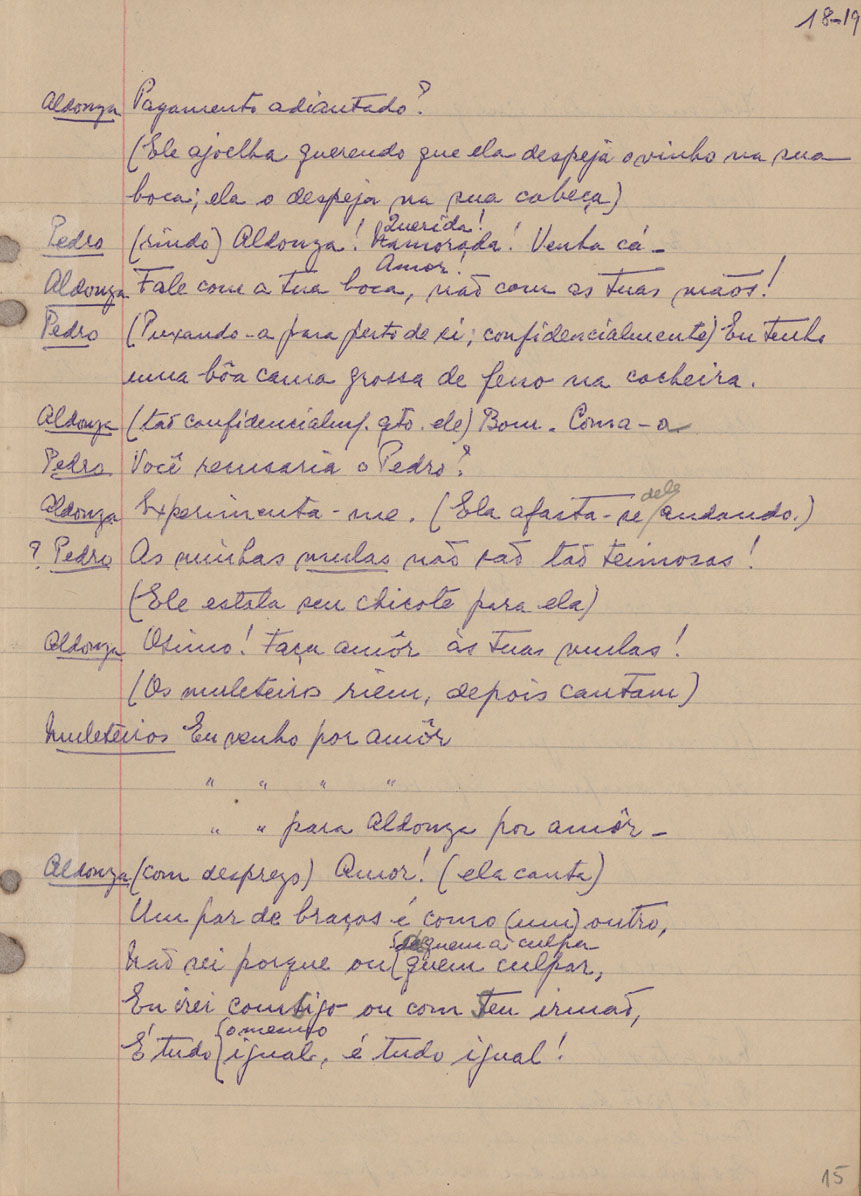 18-19
Aldonza Pagamento adiantado?
(Ele ajoelha querendo que ela despeja o vinho na sua
boca; ela o despeja na sua cabeça)
Querida!
Pedro (rindo) Aldonza! Namorada! Venha cá -
Amor
Aldonza Fale com a tua boca, não com as tuas mãos!
Pedro (Puxando-a para perto de si; confidencialmente) Eu tenho
uma bôa cama grossa de feno na cocheira.
Aldonza (tão confidencialm. qto. ele) Bom. Coma-a
Pedro Você recusaria o Pedro?
dele
Aldonza Experimenta-me. (Ela afasta-se andando.)
? Pedro As minhas mulas não são tão teimosas!
(Ele estala seu chicote para ela)
Aldonza Otimo! Faça amôr às tuas mulas!
(Os muleteiros riem, depois cantam)
Muleteiros Eu venho por amôr
" " " "
" " para Aldonza por amôr -
Aldonza (com desprezo) Amor! (ela canta)
Um par de braços é como (um) outro,
de quem a culpa
Não sei porque ou quem culpar,
Eu irei contigo ou com teu irmão,
o mesmo
É tudo igual, é tudo igual!
15